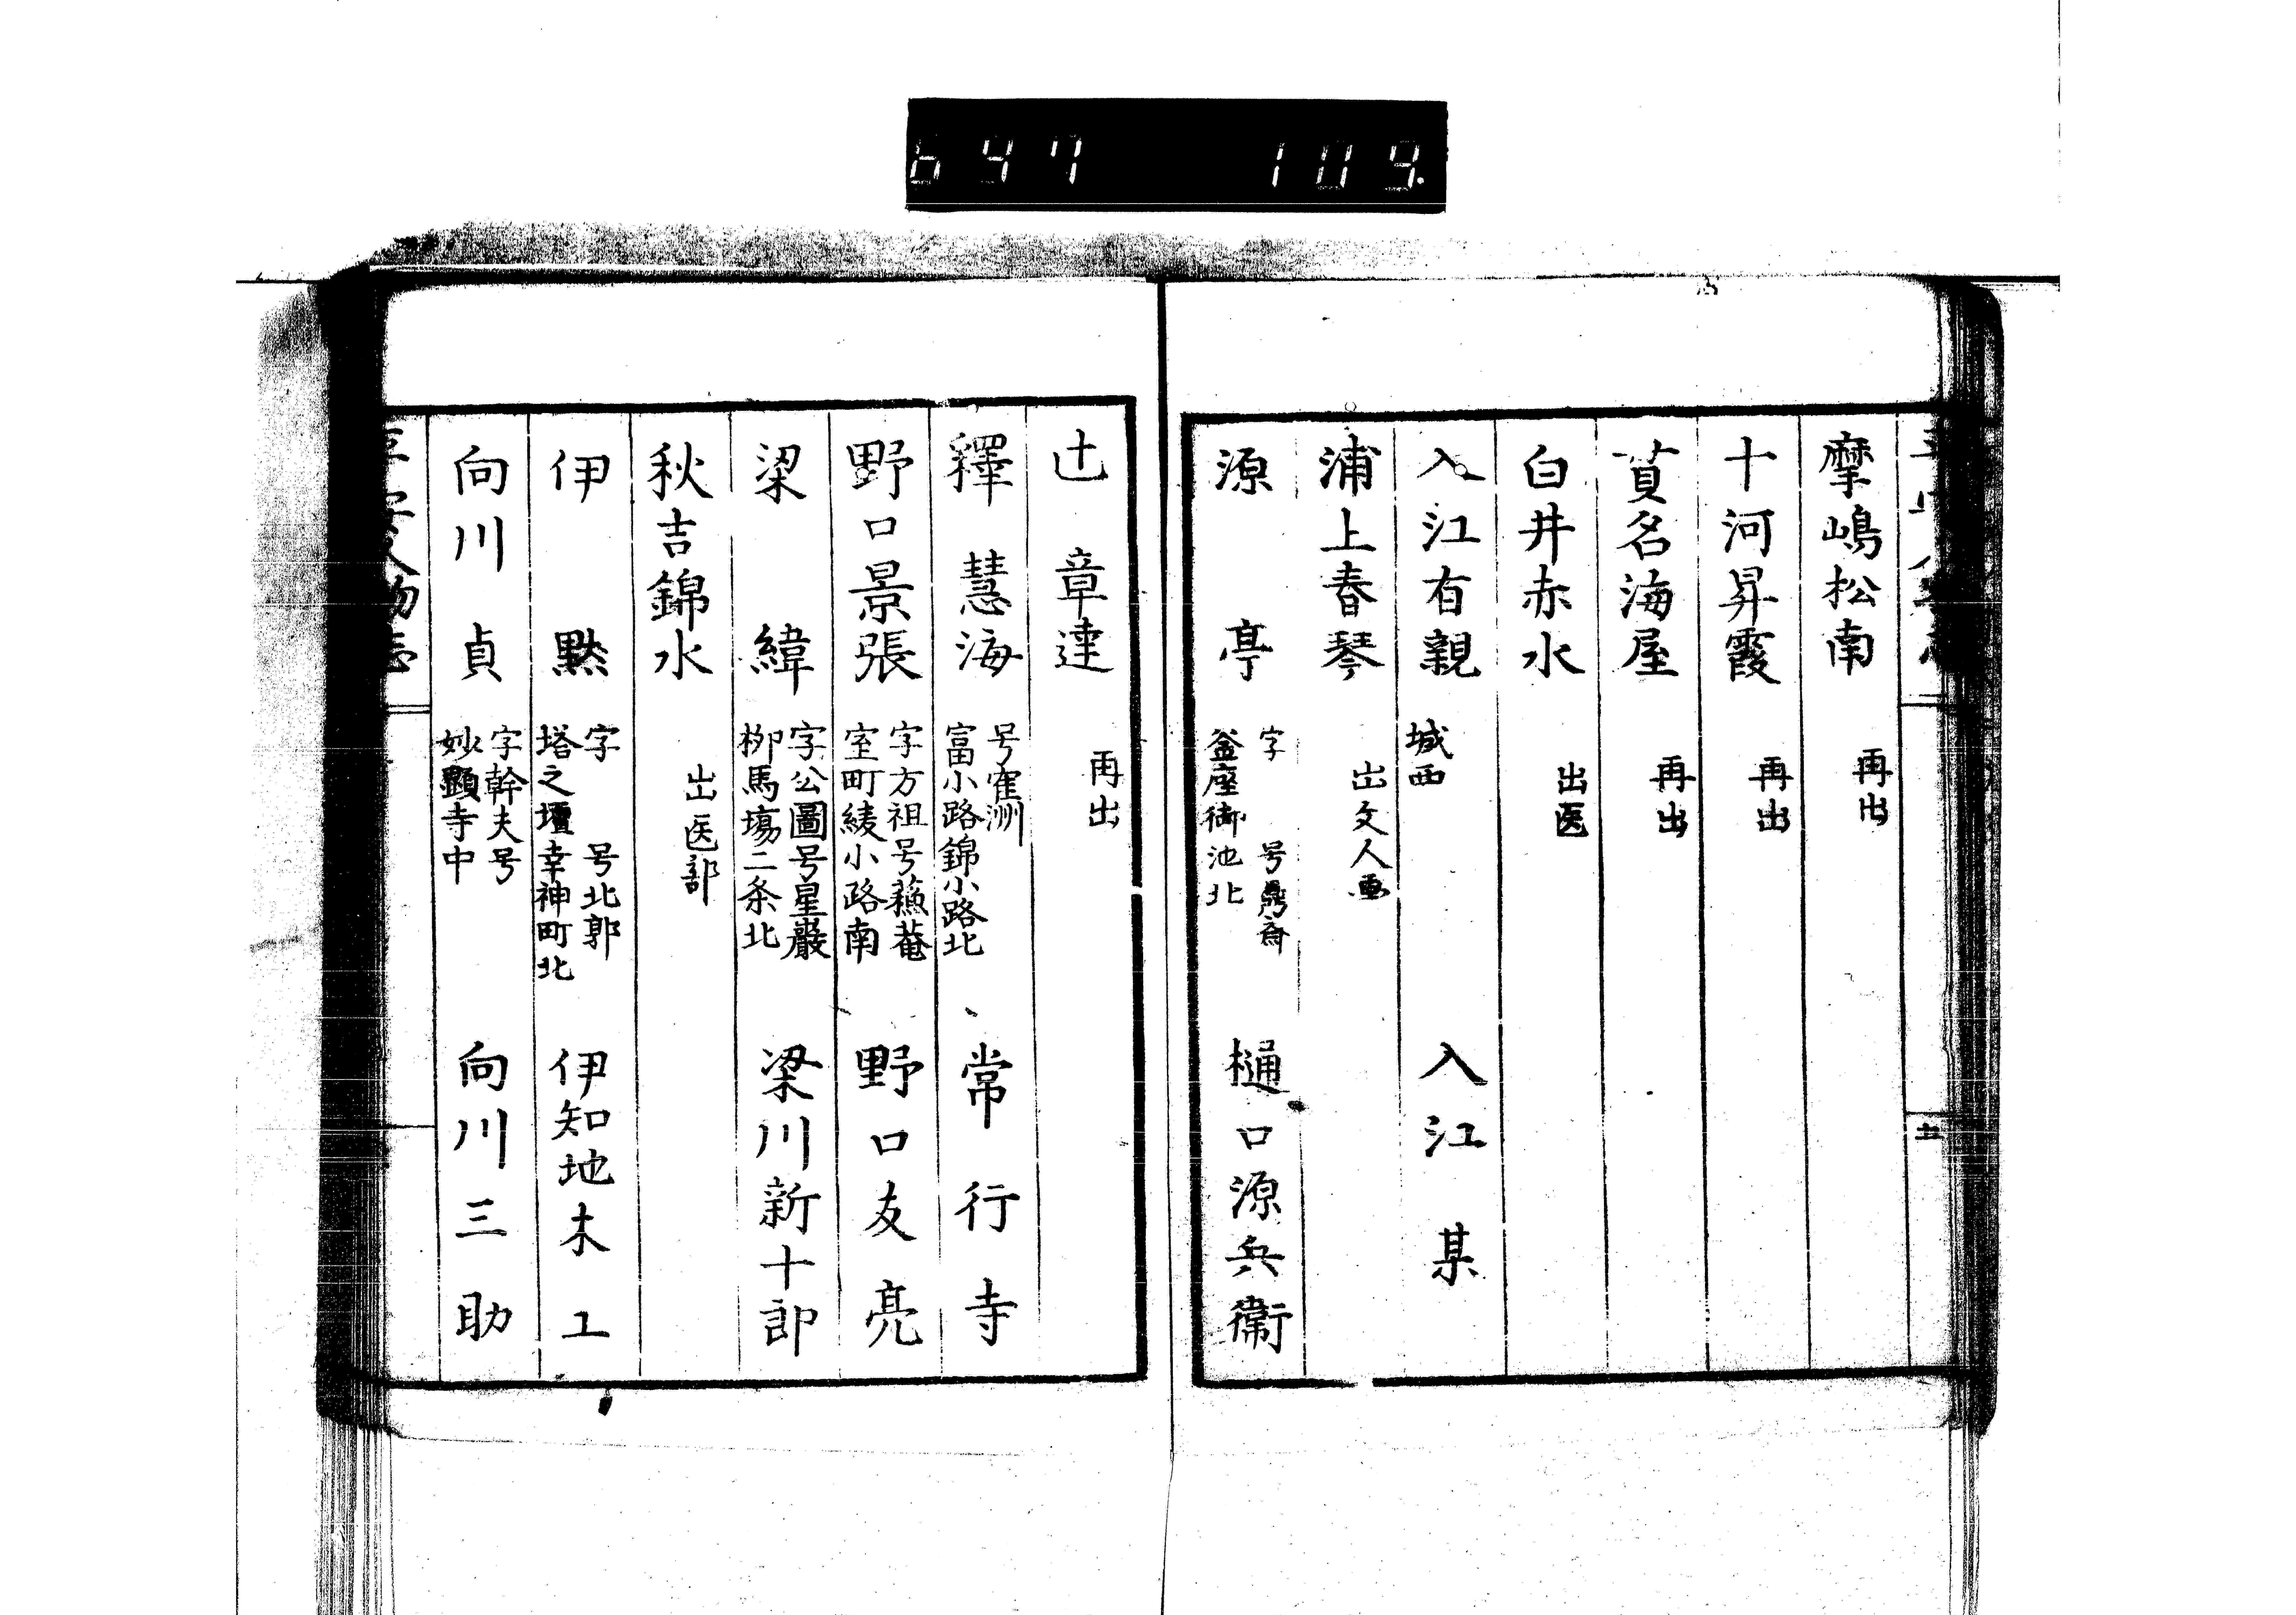 697 109.
摩嶋松南 再出
十河昇霞 再出
貫名海屋 再出
白井赤水 出医
入江有親 城西 入江某
浦上春琴 出文人画
源亭 字 号鼎斎
釜座御池北 樋口源兵衛
辻章達 再出
釋慧海 号寉洲
富小路錦小路北 常行寺
野口景張 字方祖号蘓菴
室町綾小路南 野口友亮
梁緯 字公圖号星巖
栁馬塲二条北 梁川新十郎
秋吉錦水 出医部
伊黙 字 号北郭
塔之壇幸神町北 伊知地木工
向川貞 字幹夫号
妙顕寺中 向川三助
平安人物志